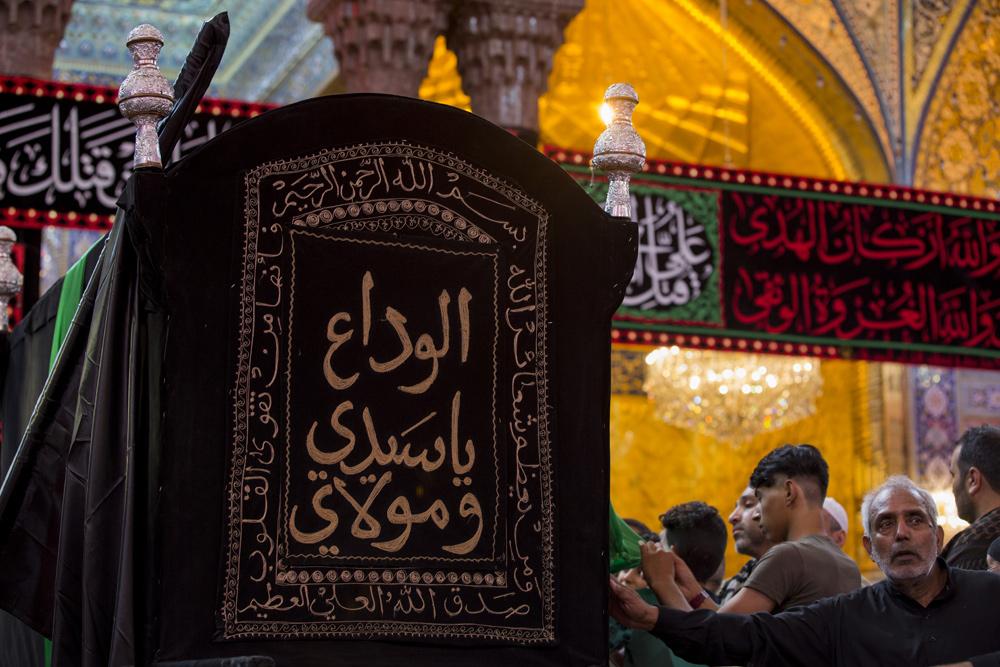 بسم الله الرحمن الرحيم
ومن يعظم شعائر الله
فإنها من تقوى القلوب
صدق الله العلي العظيم
الوداع
يا سيدي
و مولاي
قتلك
والله أركان الهدى
والله العروة الوثقى